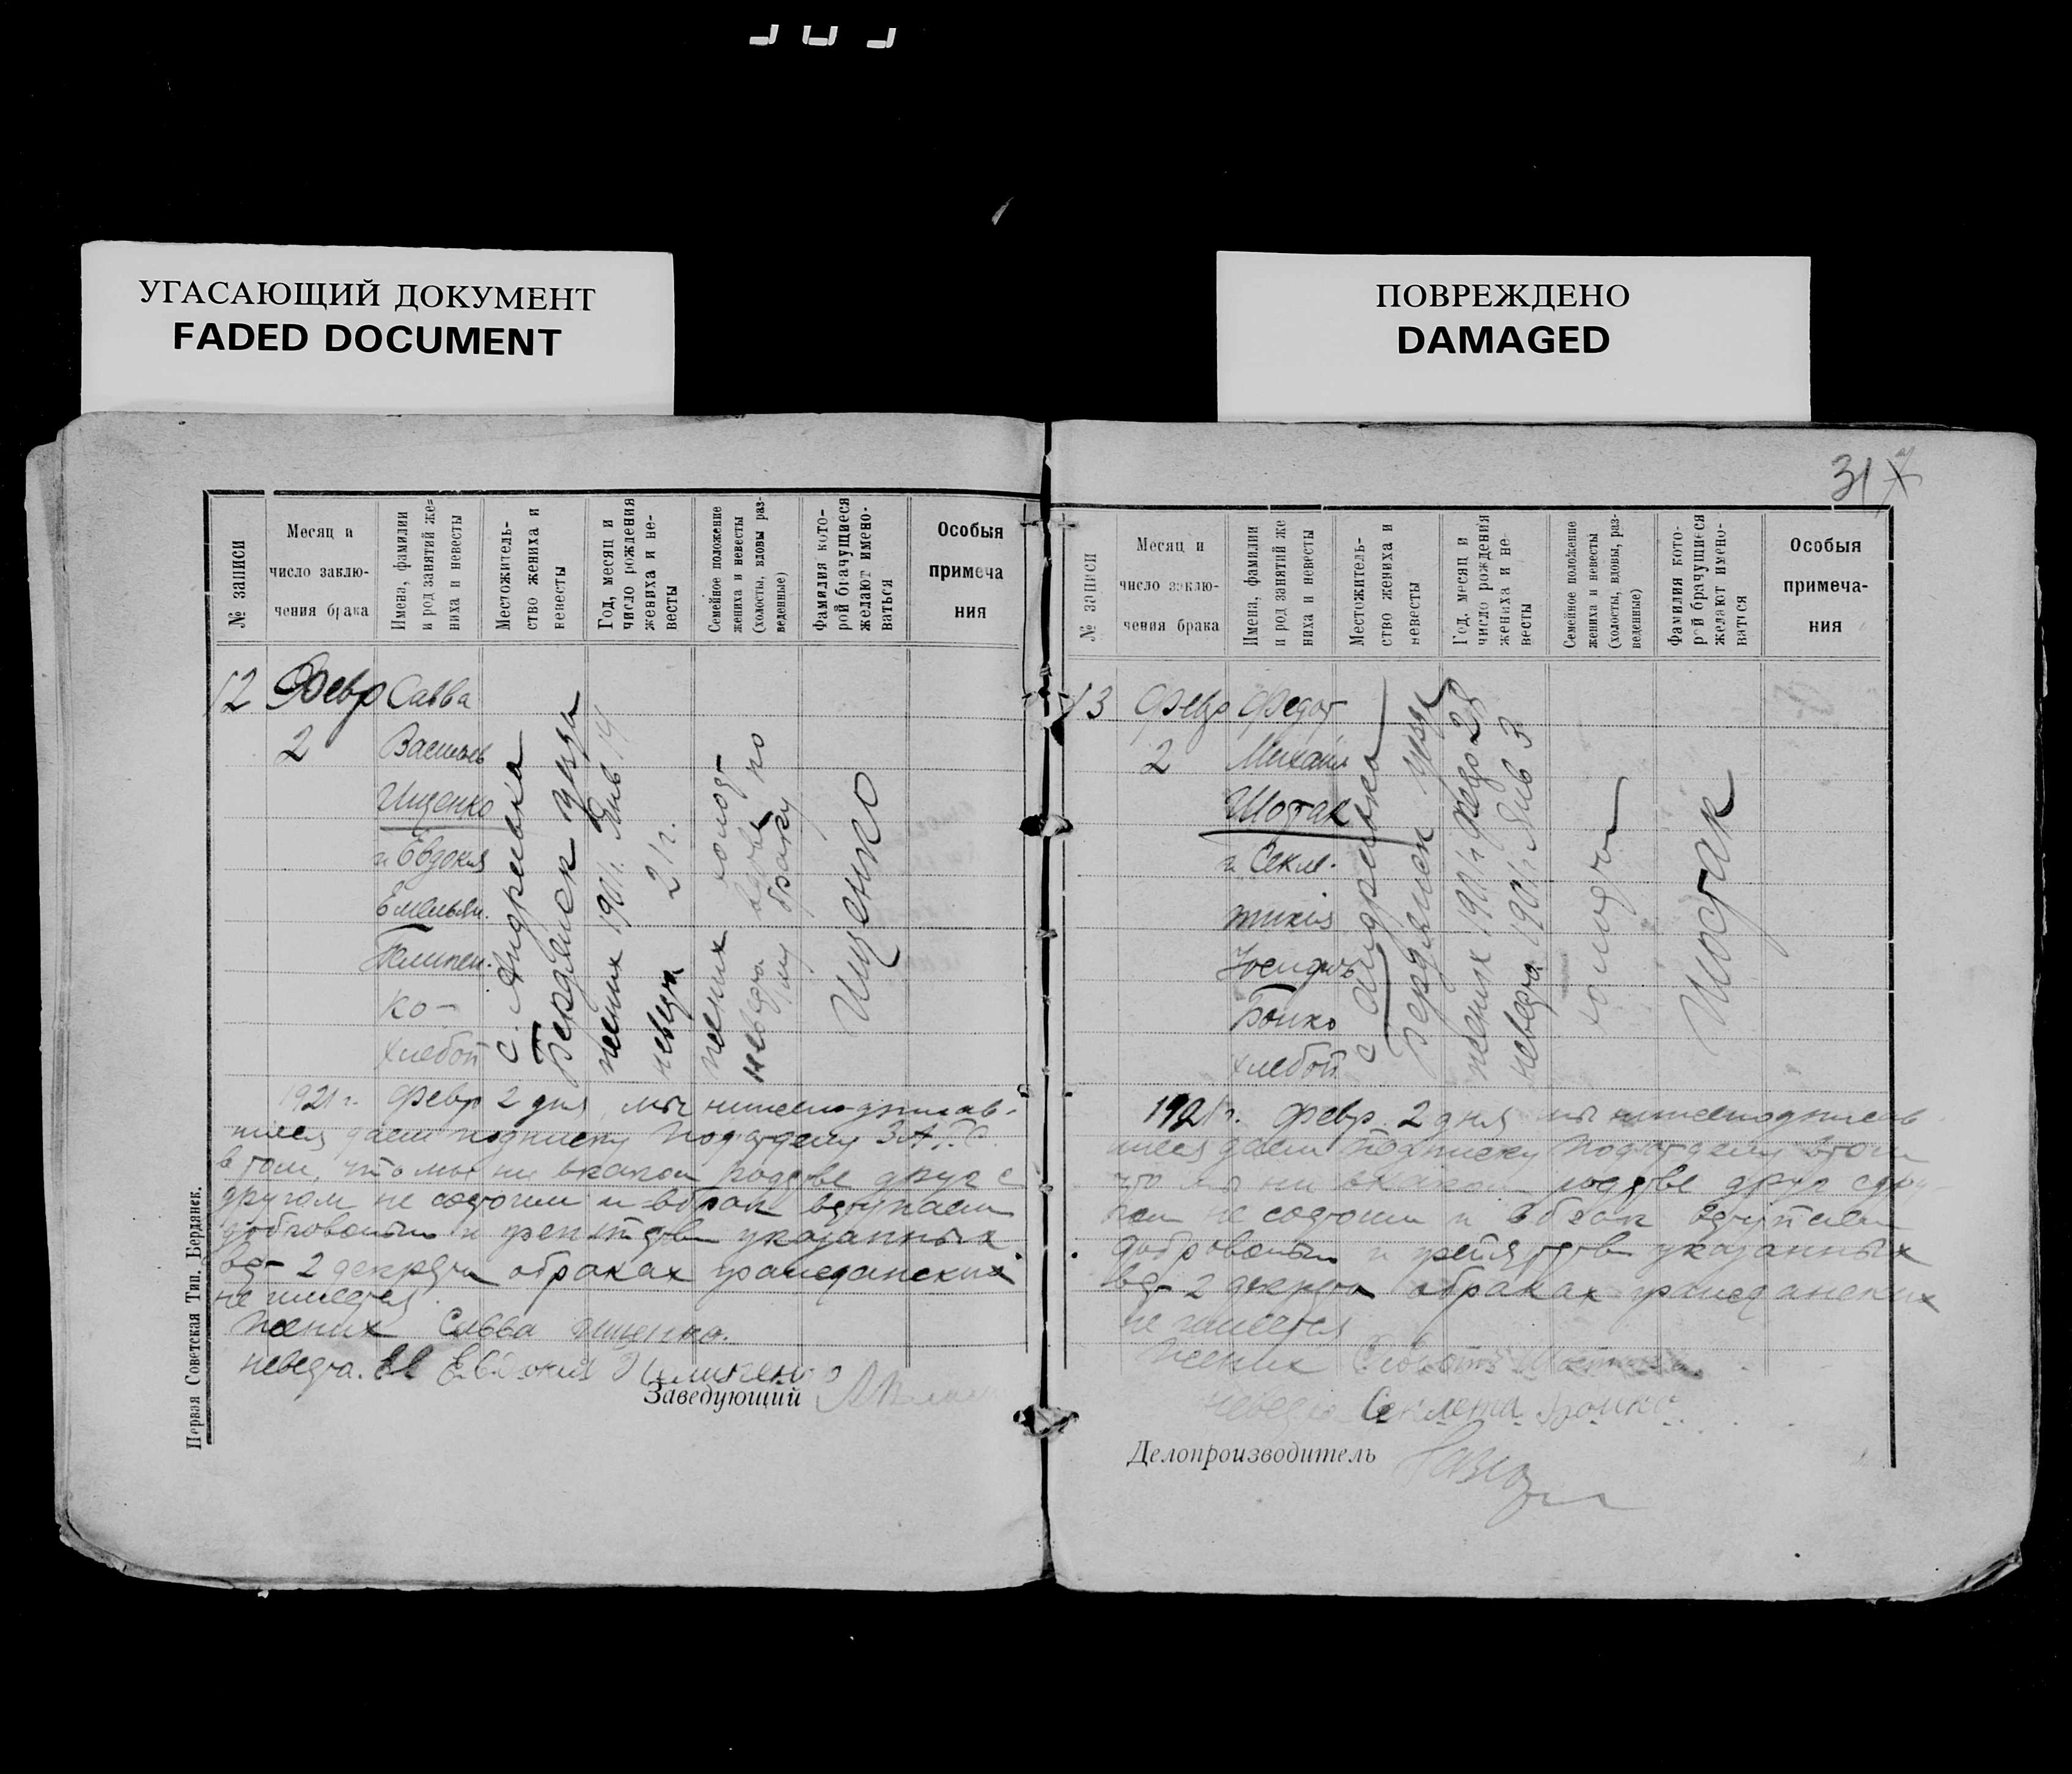 УГАСАЮЩИЙ ДОКУМЕНТ
FADED DOCUMENT
ПОВРЕЖДЕНО
DAMAGED
№ записи
Месяц и
число заклю-
чения брака
Имена, фамилии
и род занятий же-
ниха и невесты
Местожитель-
ство жениха и
невесты
Год, месяц и
число рождения
жениха и не-
весты
Семейное положение
жениха и невесты
(холосты, вдовы раз-
веденные)
Фамилия кото-
рой брачущиеся
желают имено-
ваться
Особыя
примеча
ния
12
Февр
2
Савва
Васильев
Ищенко
и Евдокия
Емельян.
Пелипен.
ко-
хлебоп
с. Андреевка
Бердянск уезда
жених 1901 г. Янв 14
невеста 21 г.
жених холост
невеста вдова по
браку
Ищенко
1921 г. Февр 2 дня, мы нижеподписав-
шиеся даем подписку Подотделу ЗАГС
в том, что мы ни в каком родстве друг с
другом не состоим и в брак вступаем
добровольно и препятствий указанных
в ст 2 декрета о браках гражданских
не имеется
Жених Савва Ищенко.
невеста. Евдокия
Заведующий
Первая Советская Тип. Бердянск.
31
№ записи
Месяц и
число заклю-
чения брака
Имена, фамилии
и род занятий же
ниха и невесты
Местожитель-
ство жениха и
невесты
Год, месяц и
число рождения
жениха и не-
весты
Семейное положение
жениха и невесты
(холосты, вдовы, раз-
веденные)
Фамилия кото-
рой брачущиеся
желают имено-
ваться
Особыя
примеча-
ния
13
Февр
2
Федот
Михайл
Шостак
и Секле-
тикия
Иосифов
Бойко
хлебоп
с Андреевка
Бердянск уезда
жених 1901 г Февр 28
невеста 1901 г Янв 3
холосты
Шостак
1921 г. Февр 2 дня мы нижеподписав
шиеся даем подписку Подотделу в том
что мы ни в каком родстве друг с дру
гом не состоим и в брак вступаем
добровольно и препятствий указанных
в ст 2 декрета о браках гражданских
не имеется
Жених
невеста Секлета Бойко
Делопроизводитель